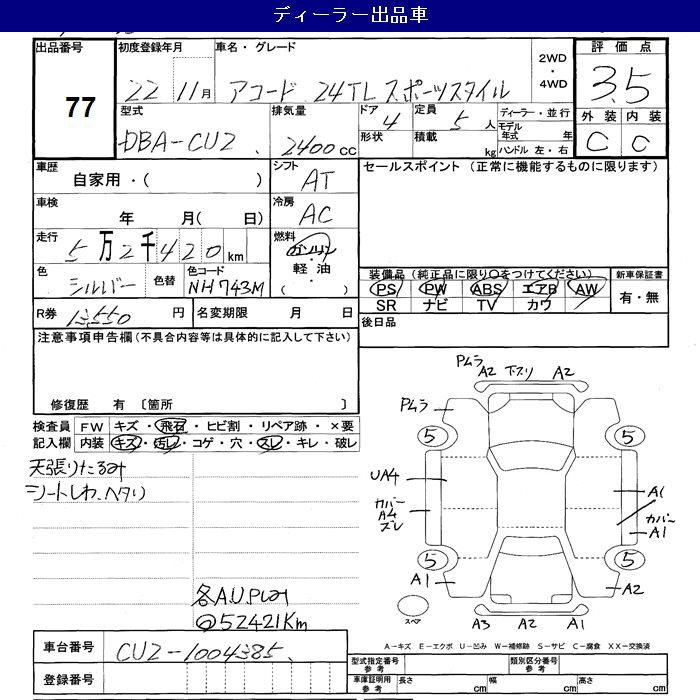 ディーラー出品車
出品番号 初度登録年月 車名・グレード 2WD・4WD 評価点
77 22 11月 アコード 24TL スポーツスタイル 3.5
外装 内装
C C
型式 排気量 ドア 定員 ディーラー・並行
DBA-CU2 2400cc 4 5人 モデル年式 年
形状 積載 kg ハンドル 左・右
車歴 シフト セールスポイント (正常に機能するものに限ります)
自家用・( ) AT
車検 冷房
年 月( 日) AC
走行 燃料
5万2千420km ガソリン・軽油・( )
色 色替 色コード
シルバー NH743M
装備品(純正品に限り○をつけてください) 新車保証書
PS PW ABS エアB AW 有・無
SR ナビ TV カワ
R券 円 名変期限 月 日 後日品
注意事項申告欄(不具合内容等は具体的に記入して下さい)
修復歴 有 〔箇所 〕
検査員 FW キズ・飛石・ヒビ割・リペア跡・×要
記入欄 内装 キズ・汚レ・コゲ・穴・スレ・キレ・破レ
天張りたるみ
シートしわ、ヘタリ
@52421Km
PムラA2 下スリ A2
Pムラ
5 5
UA4 A1
カバーA4ズレ カバーA1
5 5
A1 A2
スペア A3 A2 A1
A−キズ E−エクボ U−凹み W−補修跡 S−サビ C−腐食 XX−交換済
車台番号 CU2-1004385
登録番号
型式指定番号 参考 類別区分番号 参考
車庫証明用 参考 長さ cm 幅 cm 高さ cm